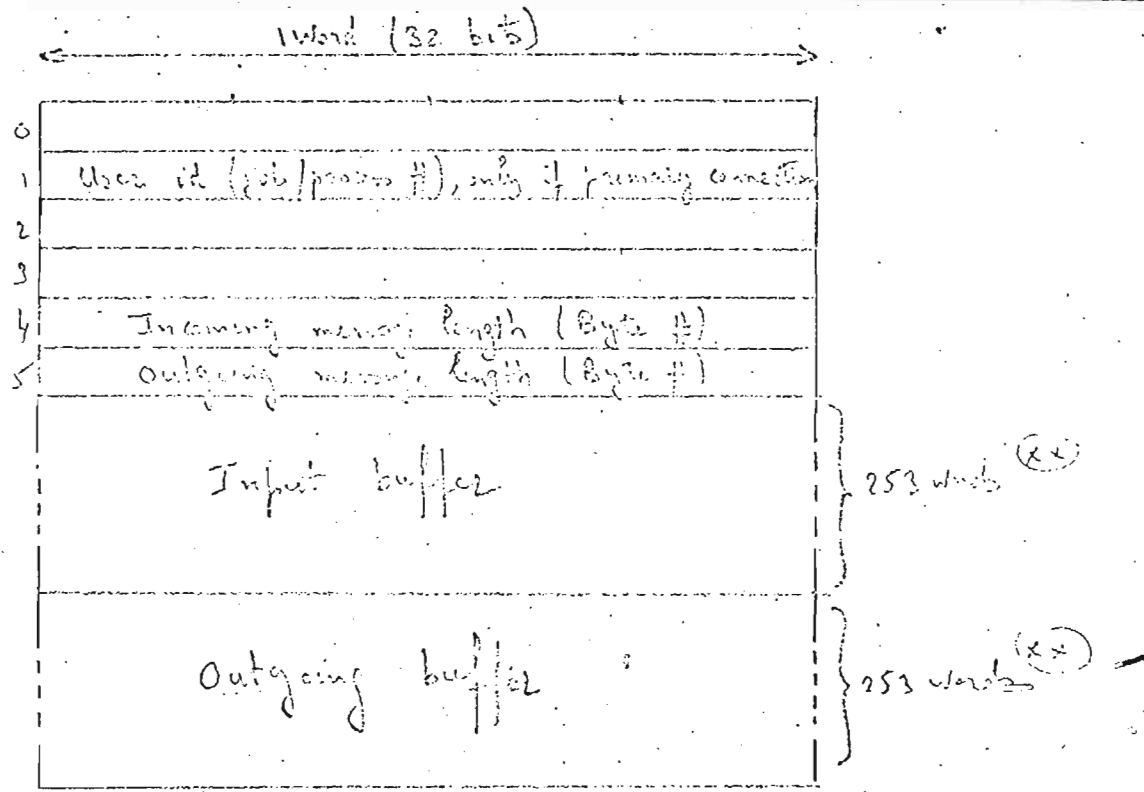 1 Word (32 bits)
0
1 User id (job/process #), only if primary connection
2
3
4 Incoming message length (Byte #)
5 Outgoing message length (Byte #)
Input buffer
253 words (xx)
Outgoing buffer
253 words (xx)